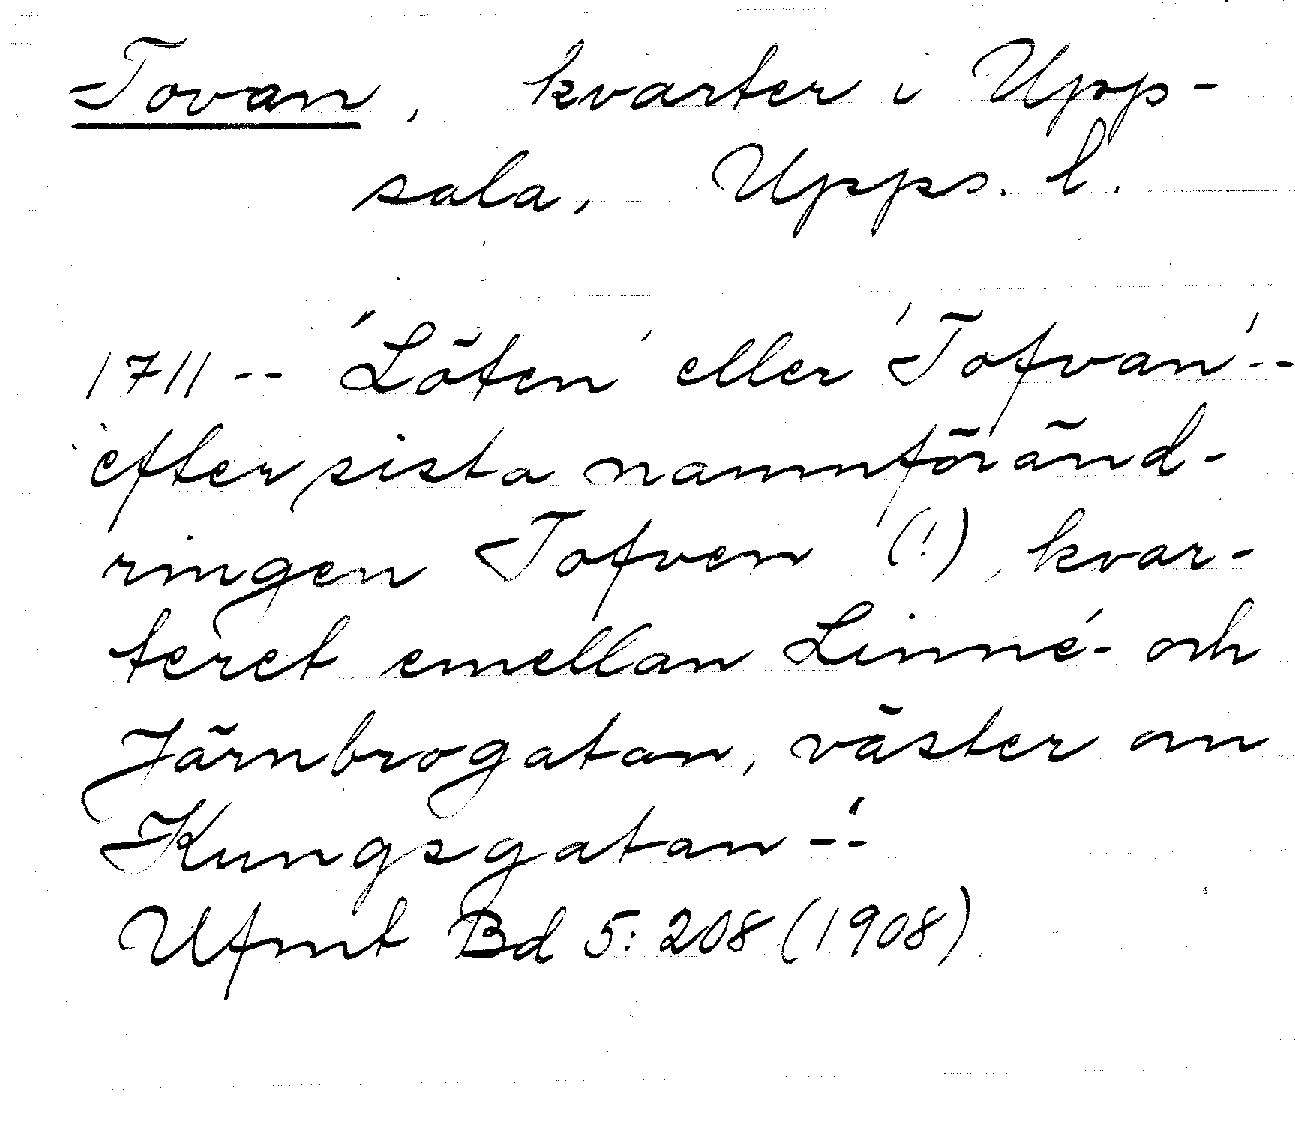 Tovan, kvarter i Upp-
sala, Upps. l.
1711 -- 'Löten' eller 'Tofvan' --
efter sista namnföränd-
ringen Tofven (!), kvar-
teret emellan Linné- och
Järnbrogatan, väster om
Kungsgatan --'
Ufmt Bd 5: 208 (1908)